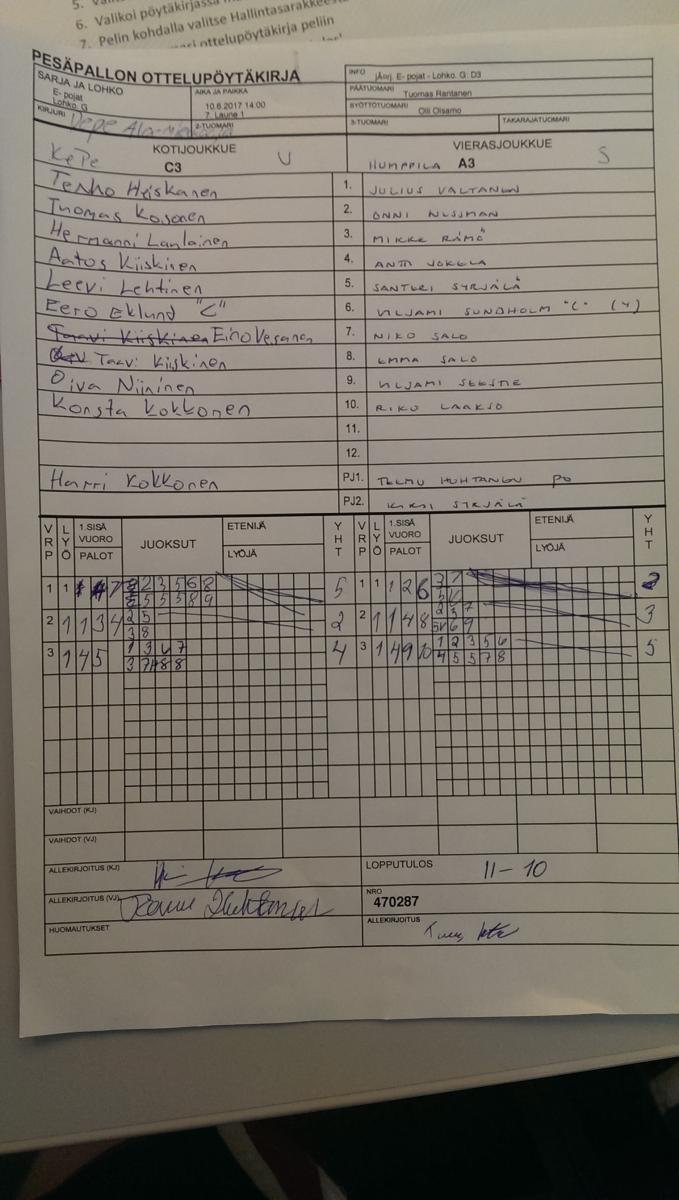 6. Valikoi pöytäkirjassa
7. Pelin kohdalla valitse Hallintasarakkees
ottelupöytäkirja peliin
PESÄPALLON OTTELUPÖYTÄKIRJA
SARJA JA LOHKO
E- pojat
Lohko. G
AIKA JA PAIKKA
10.6.2017 14.00
7. Laune 1
KIRJURI
2-TUOMARI
INFO jAorj. E- pojat - Lohko. G: D3
PÄÄTUOMARI Tuomas Rantanen
SYÖTTÖTUOMARI Olli Oisamo
3-TUOMARI TAKARAJATUOMARI
KOTIJOUKKUE VIERASJOUKKUE
KePe C3 U HUMPPILA A3 S
Tenho Heiskanen 1. JULIUS VALTANEN
Tuomas Kosonen 2. ONNI NISSMAN
Hermanni Laulainen 3. MIKKE RÄMÖ
Aatos Kiiskinen 4. ANTTI JOKELA
Leevi Lehtinen 5. SANTERI SYRJÄLÄ
Eero Eklund "C" 6. VILJAMI SUNDHOLM "C" (4)
Taavi Kiiskinen Eino Vesanen 7. NIKO SALO
Taavi Kiiskinen 8. EMMA SALO
Oiva Niininen 9. VILJAMI SEESTE
Konsta Kokkonen 10. RIKU LAAKSO
11.
12.
Harri Kokkonen PJ1. TEEMU HUHTANEN PO
PJ2. KIRSI SYRJÄLÄ
VRP LYÖ 1.SISÄ VUORO PALOT JUOKSUT ETENIJÄ LYÖJÄ YHT VRP LYÖ 1.SISÄ VUORO PALOT JUOKSUT ETENIJÄ LYÖJÄ YHT
1 1 7 2 3 5 6 8 5 1 1 1 2 6 3 7 2
5 5 5 8 9
2 1 1 3 4 2 5 2 2 1 1 4 8 2 3 7 3
3 8 6 9
3 1 4 5 1 3 6 7 4 3 1 4 9 10 1 2 3 5 6 5
3 7 8 8 4 5 5 7 8
VAIHDOT (KJ)
VAIHDOT (VJ)
ALLEKIRJOITUS (KJ) LOPPUTULOS 11-10
ALLEKIRJOITUS (VJ) NRO
470287
HUOMAUTUKSET ALLEKIRJOITUS